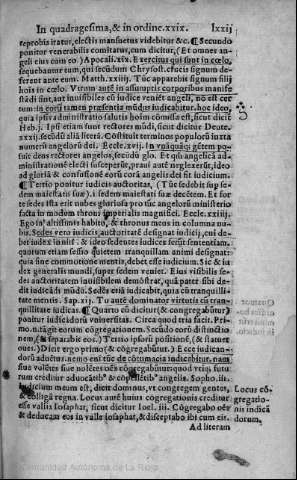 In quadragesima, & in ordine.xxix. Lxxij
reprobis iratus, electis mansuetus videbitur &c. ¶ Secundo
ponitur venerabilis comitatus, cum dicitur, (Et omnes an-
geli eius cum eo.) Apocali.xix. Exercitus qui sunt in cœlo,
sequebantur eum, qui secūdum Chrysost. crucis signum de
ferent ante eum. Matth.xxiiij. Tūc apparebit signum filij
hois in cœlo. Vtrum autē in assumptis corporibus manife
stādi sint, aut inuisibiles cū iudice veniēt angeli, no est cer
tum in posti tamen presentia mūdus iudicabitur. hoc ideo,
quia in administratorio salutis hoim cōmissa est, sicut dicit
Heb.j. Ipsi etiam sunt rectores mūdi, sicut dicitur Deute.
xxxij. secūdū aliā literē. Cōstituit terminos populorū iuxta
numerū angelorū dei. Eccle.xvij. In vnāquāqs gētem po-
suit deus rectores angelos, secūdū glos. Et qui angelica ad-
ministratione electi suscepērūt, praui autē neglexerūt, ideo
ad gloriā & confusionē eorū corā angelis dei fit iudicium.
¶ Tertio ponitur iudicis authoritas, (Tūc sedebit sup se
dem maiestatis suæ) .i. sedem maiestati suæ decētem. Et for
te sedes ista erit nubes gloriosa pro tūc angelorū ministerio
facta in modum throni imperialis magnifici. Eccle.xxiiij.
Ego in altissimis habito, & thronus meus in columna nu-
bis. Sedes vero iudicis, authoritatē designat iudicij, cū de-
bet iudex in illis & ideo sedentes iudices ferūt sententiam.
quorum etiam sessio quietem tranquillam animi designat:
quia sine commotione mentis, debet esse iudicium. Sic & iu
dex generalis mundi, super sedem veniet. Eius visibilis se-
des authoritatem inuisibilem demōstrat, quā pater sibi de-
dit iudicādi mūdū. Sedēs etiā iudicabit, quia cū tranquilli-
tate mentis. Sap.xij. Tu autē dominator virtutis cū tran-
quillitate iudicas. ¶ Quarto cū dicitur (& congregabūtur)
ponitur iudicādorū vniuersitas. Circa quod tria facit. Pri-
mo. n. tāgit eorum cōgregationem. Secundo eorū distinctio
nem, (& separabit eos.) Tertio ipsorū positionē, (& statuet
oues.) Dicit ergo primo (& cōgregabūtur.) Ecce iudican-
dorū aductus. nemo eni tūc de cōtumacia iudicabitur, nam
siue volētes siue nolētes oēs cōgregabūtur
cum credūtur
iudicium meum est, dicit dominus, vt congregem gentes,
& colligā regna. Locus autē huius cōgregationis creditur
esse vallis Iosaphat, sicut dicitur Ioel.iii. Cōgregabo oēs
& deducam eos in vallē Iosaphat, & disceptabo ibi cum eis.
Locus cō-
gregatio-
nis iudicā
dorum.
Ad literam
Comunidad Autónoma de La Rioja